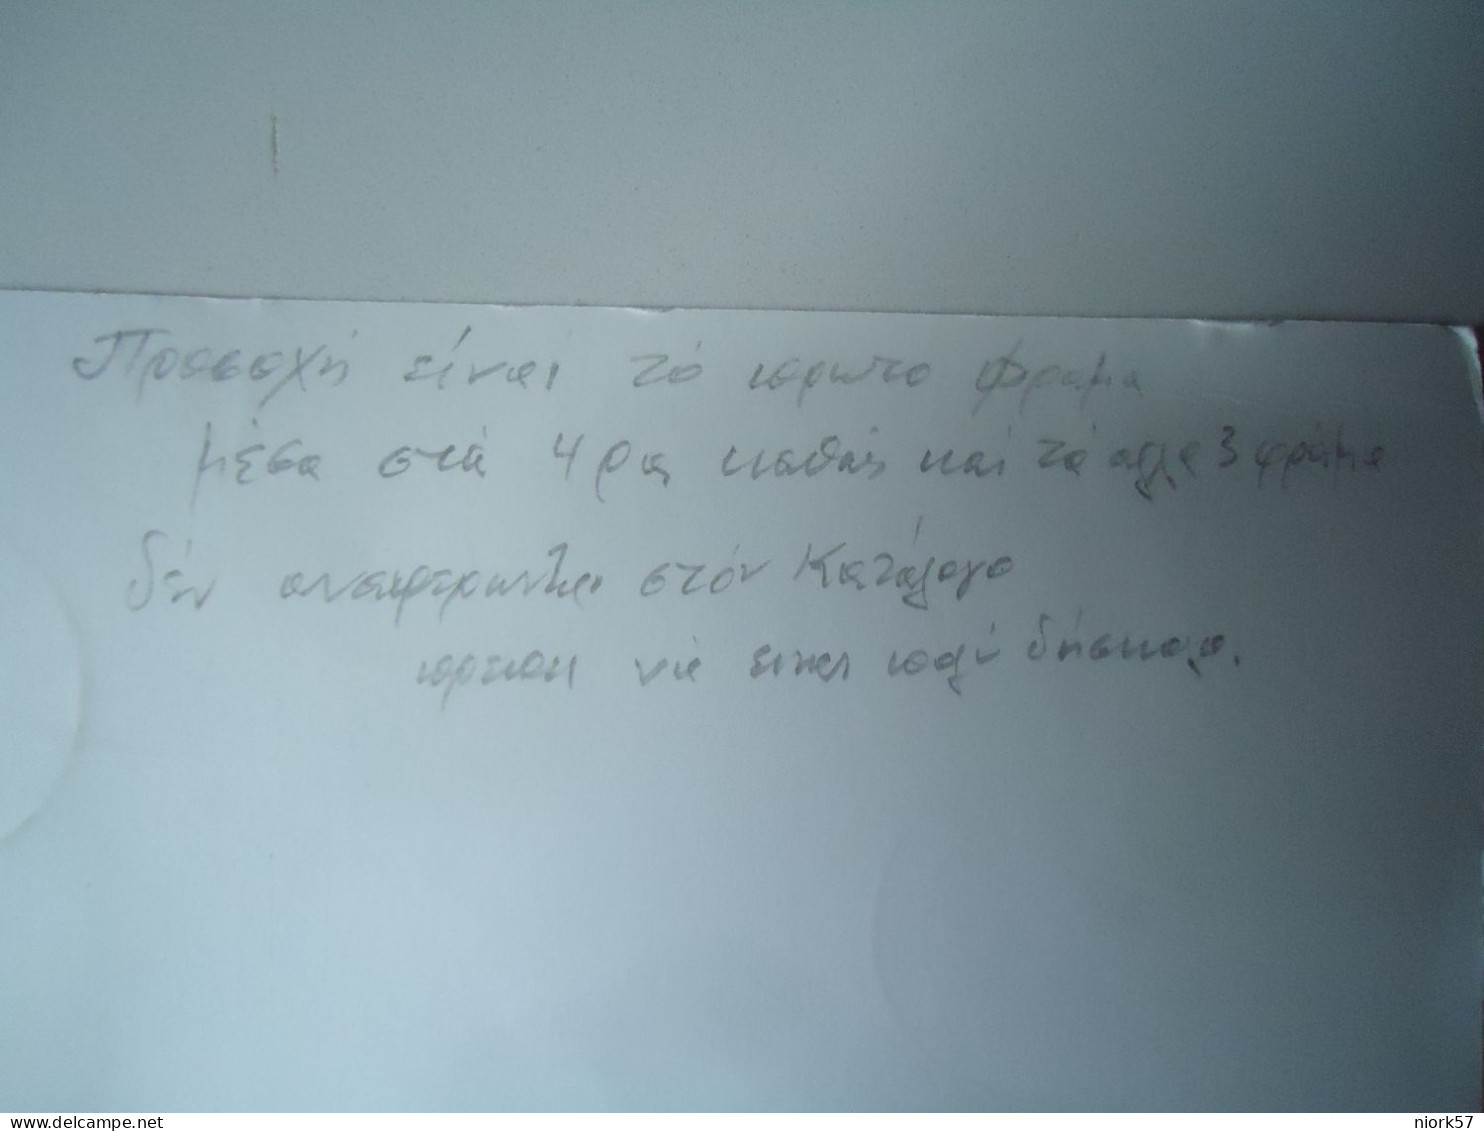 Προσοχή είναι τό πρωτο φραμα
μέσα στά 4ρα καθώς και τά αλλα 3 φράμα
δέν αναφερωνται στόν Κατάλογο
πρεπει νά ειναι πολύ δήσκολο.
delcampe.net
niork57